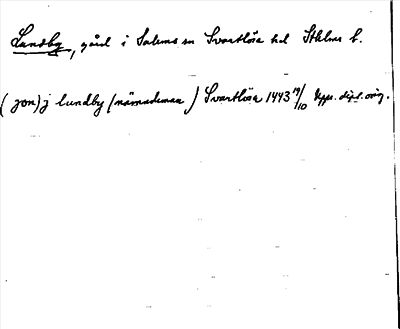 Lundby, gård i Salems sn Svartlösa hd Sthlms l.
(jon) j lundby (nämndeman) Svartlösa 1443 19/10 Upps. dipl. orig.